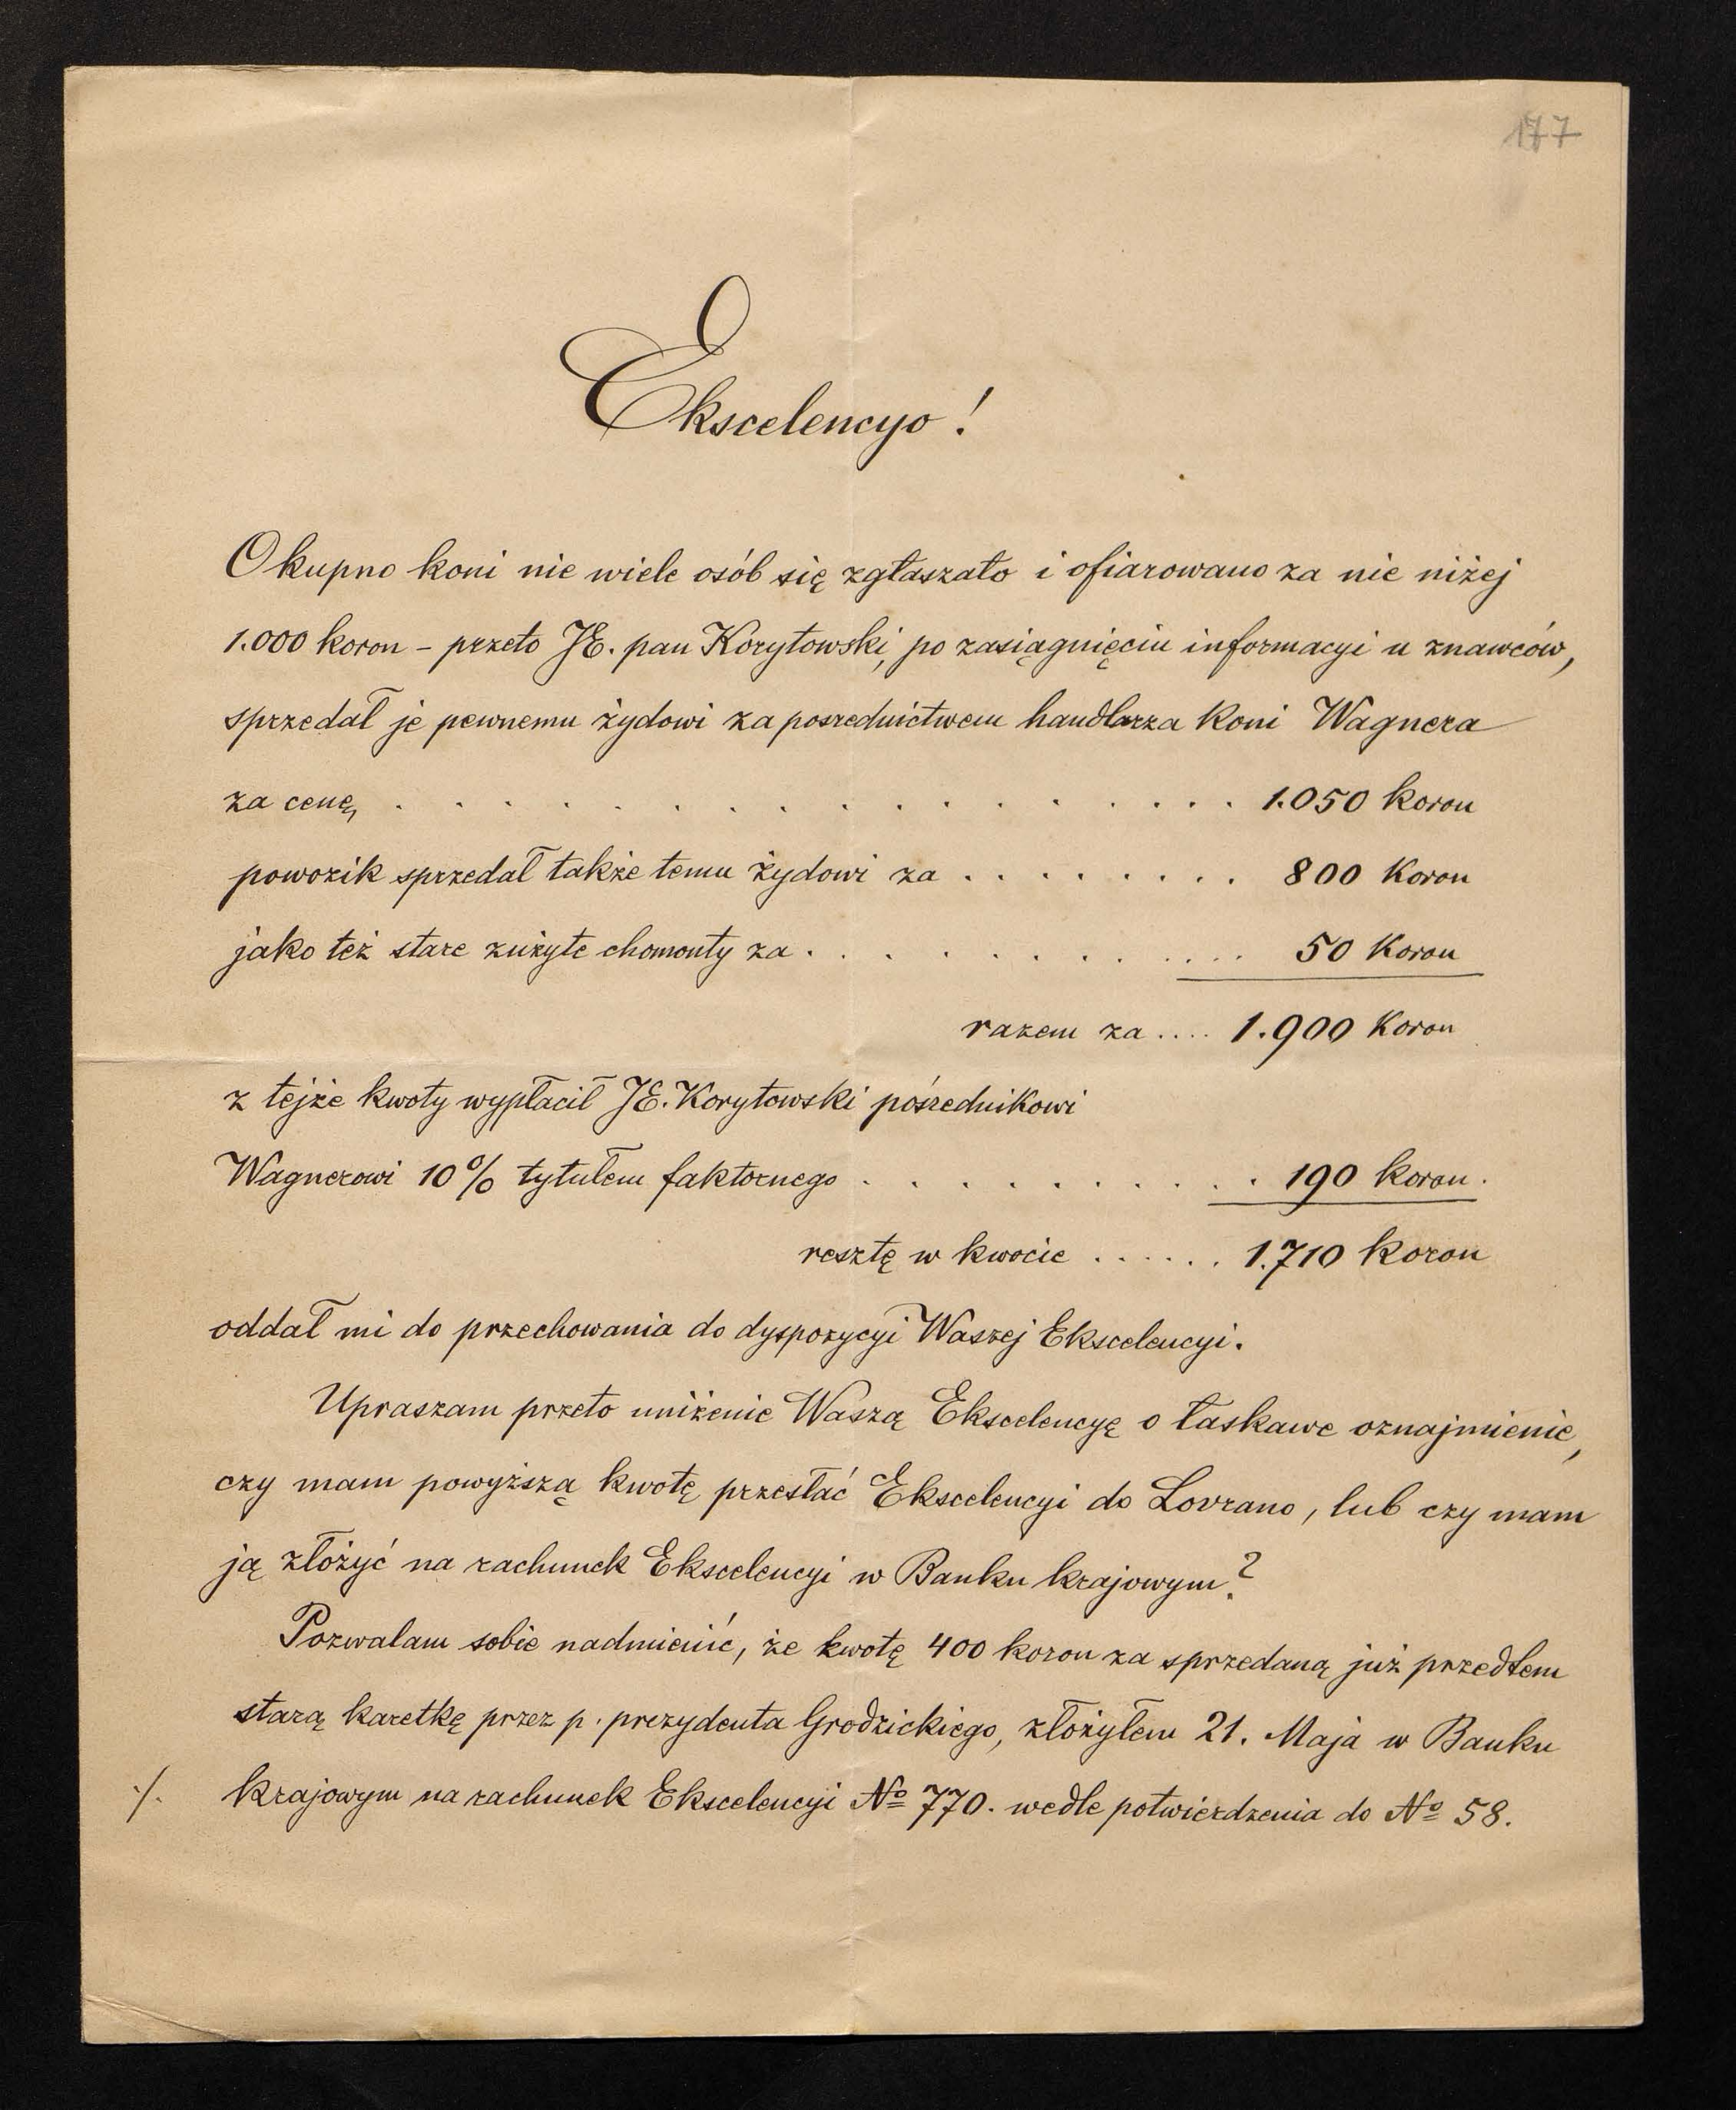 177
Ekscelencyo!
O kupno koni nie wiele osób się zgłaszało i ofiarowano za nie niżej
1.000 koron – przeto JE. pan Korytowski, po zasiągnięciu informacyi u znawców,
sprzedał je pewnemu żydowi za pośrednictwem handlarza koni Wagnera
za cenę . . . . . . . . . . . . . . . . 1.050 koron
powozik sprzedał także temu żydowi za . . . . . . . . 800 koron
jako też stare zużyte chomonty za . . . . . . . . . . . 50 koron
razem za .... 1.900 koron
z tejże kwoty wypłacił JE. Korytowski pośrednikowi
Wagnerowi 10% tytułem faktornego . . . . . . . . . . 190 koron.
resztę w kwocie . . . . . . 1.710 koron
oddał mi do przechowania do dyspozycyi Waszej Ekscelencyi.
Upraszam przeto uniżenie Waszą Ekscelencyę o łaskawe oznajmienie,
czy mam powyższą kwotę przesłać Ekscelencyi do Lovrano, lub czy mam
ją złożyć na rachunek Ekscelencyi w Banku krajowym?
Pozwalam sobie nadmienić, że kwotę 400 koron za sprzedaną już przedtem
starą karetkę przez p. prezydenta Grodzickiego, złożyłem 21. Maja w Banku
./. krajowym na rachunek Ekscelencyi No 770. wedle potwierdzenia do No 58.